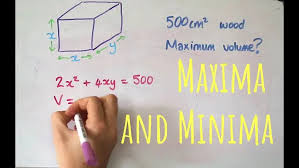 500cm² wood
Maximum volume?
x
x
y
2x² + 4xy = 500
V =
Maxima
and Minima